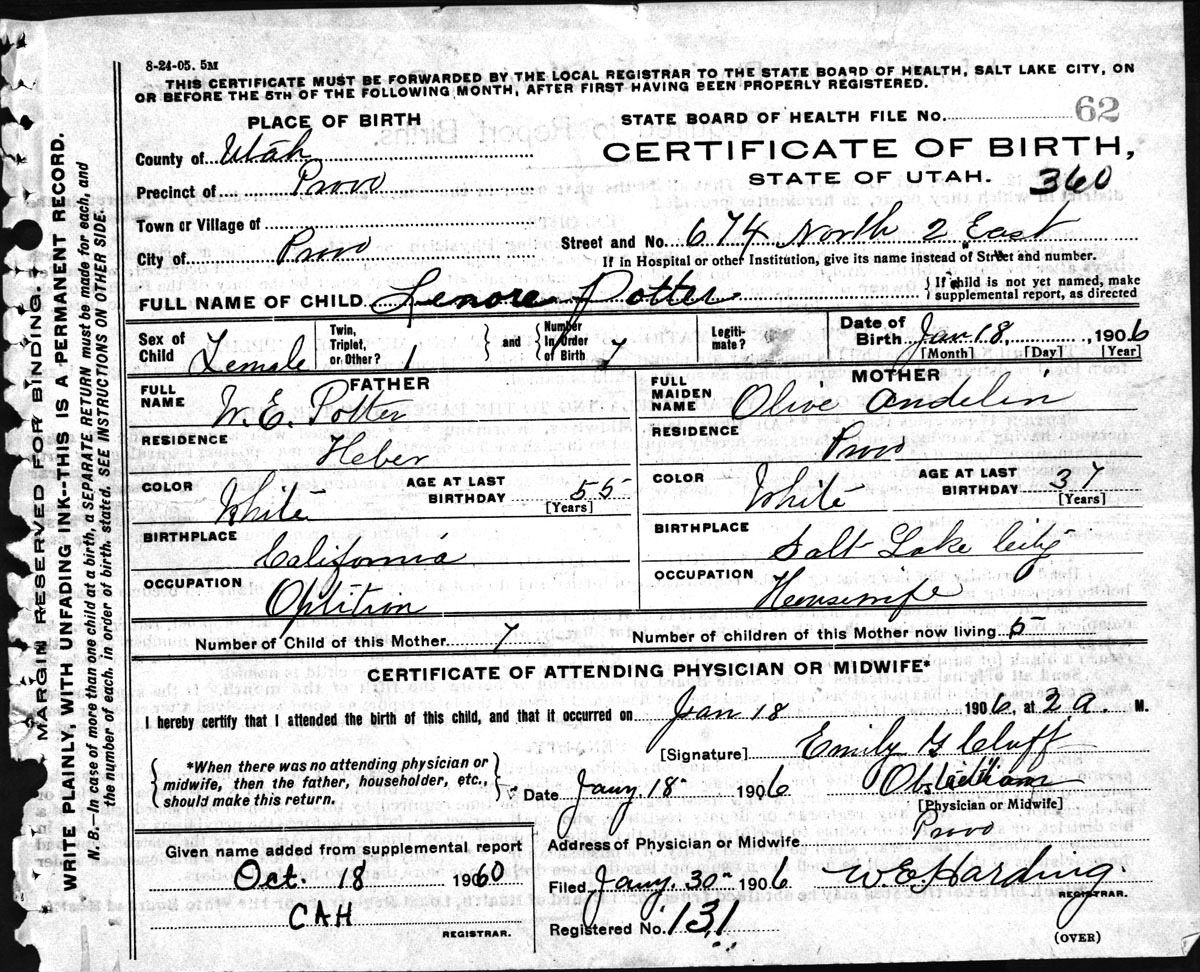 8-24-05. 5M
THIS CERTIFICATE MUST BE FORWARDED BY THE LOCAL REGISTRAR TO THE STATE BOARD OF HEALTH, SALT LAKE CITY, ON
OR BEFORE THE 5TH OF THE FOLLOWING MONTH, AFTER FIRST HAVING BEEN PROPERLY REGISTERED.
PLACE OF BIRTH
STATE BOARD OF HEALTH FILE No. 62
County of Utah
CERTIFICATE OF BIRTH,
Precinct of Provo
STATE OF UTAH. 360
Town or Village of
City of Provo
Street and No. 674 North 2" East
If in Hospital or other Institution, give its name instead of Street and number.
FULL NAME OF CHILD Lenore Potter
{ If child is not yet named, make
supplemental report, as directed
Sex of Child Female
Twin, Triplet, or Other? 1
and
Number In Order of Birth 7
Legitimate?
Date of Birth Jan 18, 1906
[Month] [Day] [Year]
FATHER
FULL NAME W. E. Potter
RESIDENCE Heber
COLOR White
AGE AT LAST BIRTHDAY 55
[Years]
BIRTHPLACE California
OCCUPATION Optition
MOTHER
FULL MAIDEN NAME Olive Andelin
RESIDENCE Provo
COLOR White
AGE AT LAST BIRTHDAY 37
[Years]
BIRTHPLACE Salt Lake City
OCCUPATION Housewife
Number of Child of this Mother 7
Number of children of this Mother now living 5
CERTIFICATE OF ATTENDING PHYSICIAN OR MIDWIFE*
I hereby certify that I attended the birth of this child, and that it occurred on Jan 18 1906, at 2 a. M.
[Signature] Emily G Cluff
{ *When there was no attending physician or
midwife, then the father, householder, etc.,
should make this return. }
Date Jany. 18 1906
[Physician or Midwife]
Address of Physician or Midwife Provo
Given name added from supplemental report
Oct. 18 19060
CAH
REGISTRAR.
Filed Jany. 30 1906
W E Harding.
REGISTRAR.
Registered No. 131
(OVER)
MARGIN RESERVED FOR BINDING.
WRITE PLAINLY, WITH UNFADING INK--THIS IS A PERMANENT RECORD.
N. B.—In case of more than one child at a birth, a SEPARATE RETURN must be made for each, and
the number of each, in order of birth, stated. SEE INSTRUCTIONS ON OTHER SIDE.